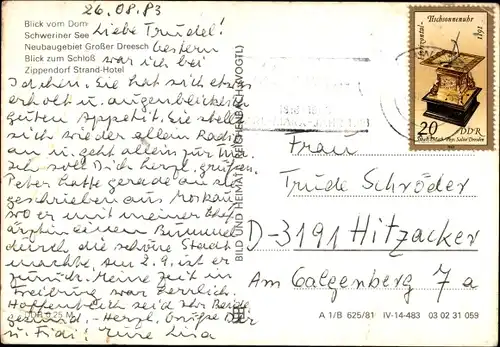 26.08.83
Blick vom Dom
Schweriner See
Neubaugebiet Großer Dreesch
Blick zum Schloß
Zippendorf Strand-Hotel
Liebe Trudel!
Gestern
war ich bei
Sie hat sich etwas
erholt u. augenblicklich
guten Appetit. Sie stellt
sich wieder allein Radio
an u. geht allein zur Tür.
Ich soll Dich herzl. grüßen.
Peter hatte gerade an sie
geschrieben aus Moskau,
wo er mit meiner
ärztin einen Bummel
durch die schöne Stadt
machte. Am 2.9. ist er
zurück. Meine Zeit in
Freiburg war herrlich.
Hoffentlich seid Ihr Beide
gesund. Herzl. Grüße Dir
u. Fidi! Eure Lisa
BILD UND HEIMAT REICHENBACH (VOGTL)
Horizontal-
Tischsonnenuhr
1791
20 DDR
Staatl. Math.-Phys. Salon Dresden
Frau
Trude Schröder
D-3191 Hitzacker
Am Galgenberg 7a
A 1/B 625/81 IV-14-483 03 02 31 059